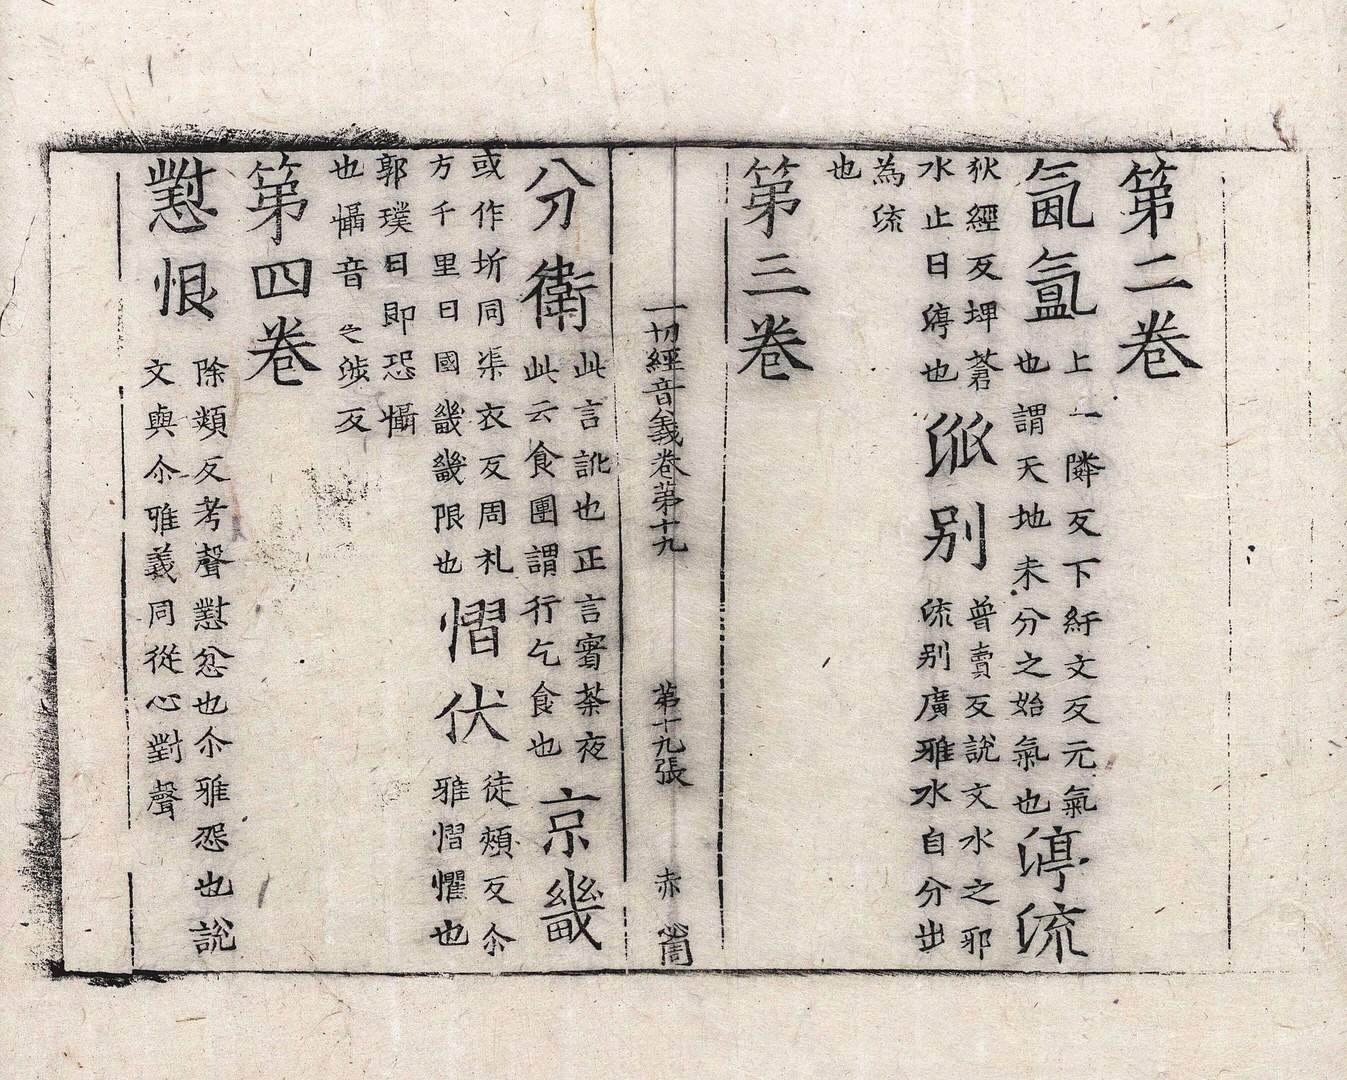 第二卷
氤氳上一隣反下紆文反元氣
也謂天地未分之始氣也渟流
狄經反埤蒼
水止曰渟也𣲖别普賣反說文水之邪
流别廣雅水自分出
為流
也
第三卷
一切經音義卷第十九 第十九張 赤
分衛此言訛也正言賓荼夜
此云食團謂行乞食也京畿
或作圻同渠衣反周礼
方千里曰國畿畿限也慴伏徒頰反尒
雅慴懼也
郭璞曰即恐懾
也懾音之涉反
第四卷
懟恨除類反考聲懟忿也尒雅怨也說
文與尒雅義同從心對聲